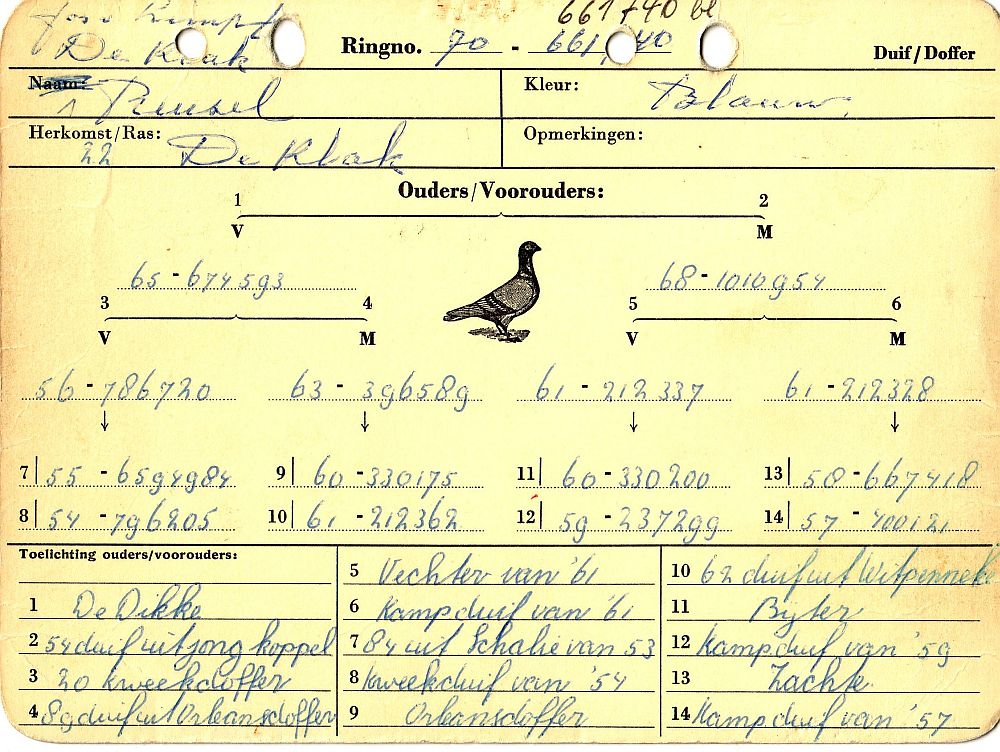 661740 bl
De Klak
Ringno. 70 - 661740
Duif/Doffer
Naam: Reusel
Kleur: Blauw
Herkomst/Ras: 22 De Klak
Opmerkingen:
Ouders/Voorouders:
1 2
V M
65-674593 68-1010954
3 4 5 6
V M V M
56-786720 63-396589 61-212337 61-212328
7 55-6594984 9 60-330175 11 60-330200 13 58-667418
8 54-796205 10 61-212362 12 59-237299 14 57-400121
Toelichting ouders/voorouders:
1 De Dikke
2 54 duif uit jong koppel
3 20 kweekdoffer
4 89 duif uit Orleansdoffer
5 Vechter van '61
6 Kampduif van '61
7 84 uit Schalie van 53
8 Kweekduif van '54
9 Orleansdoffer
10 62 duif uit Witpenneke
11 Byter
12 Kampduif van '59
13 Zachte
14 Kampduif van '57